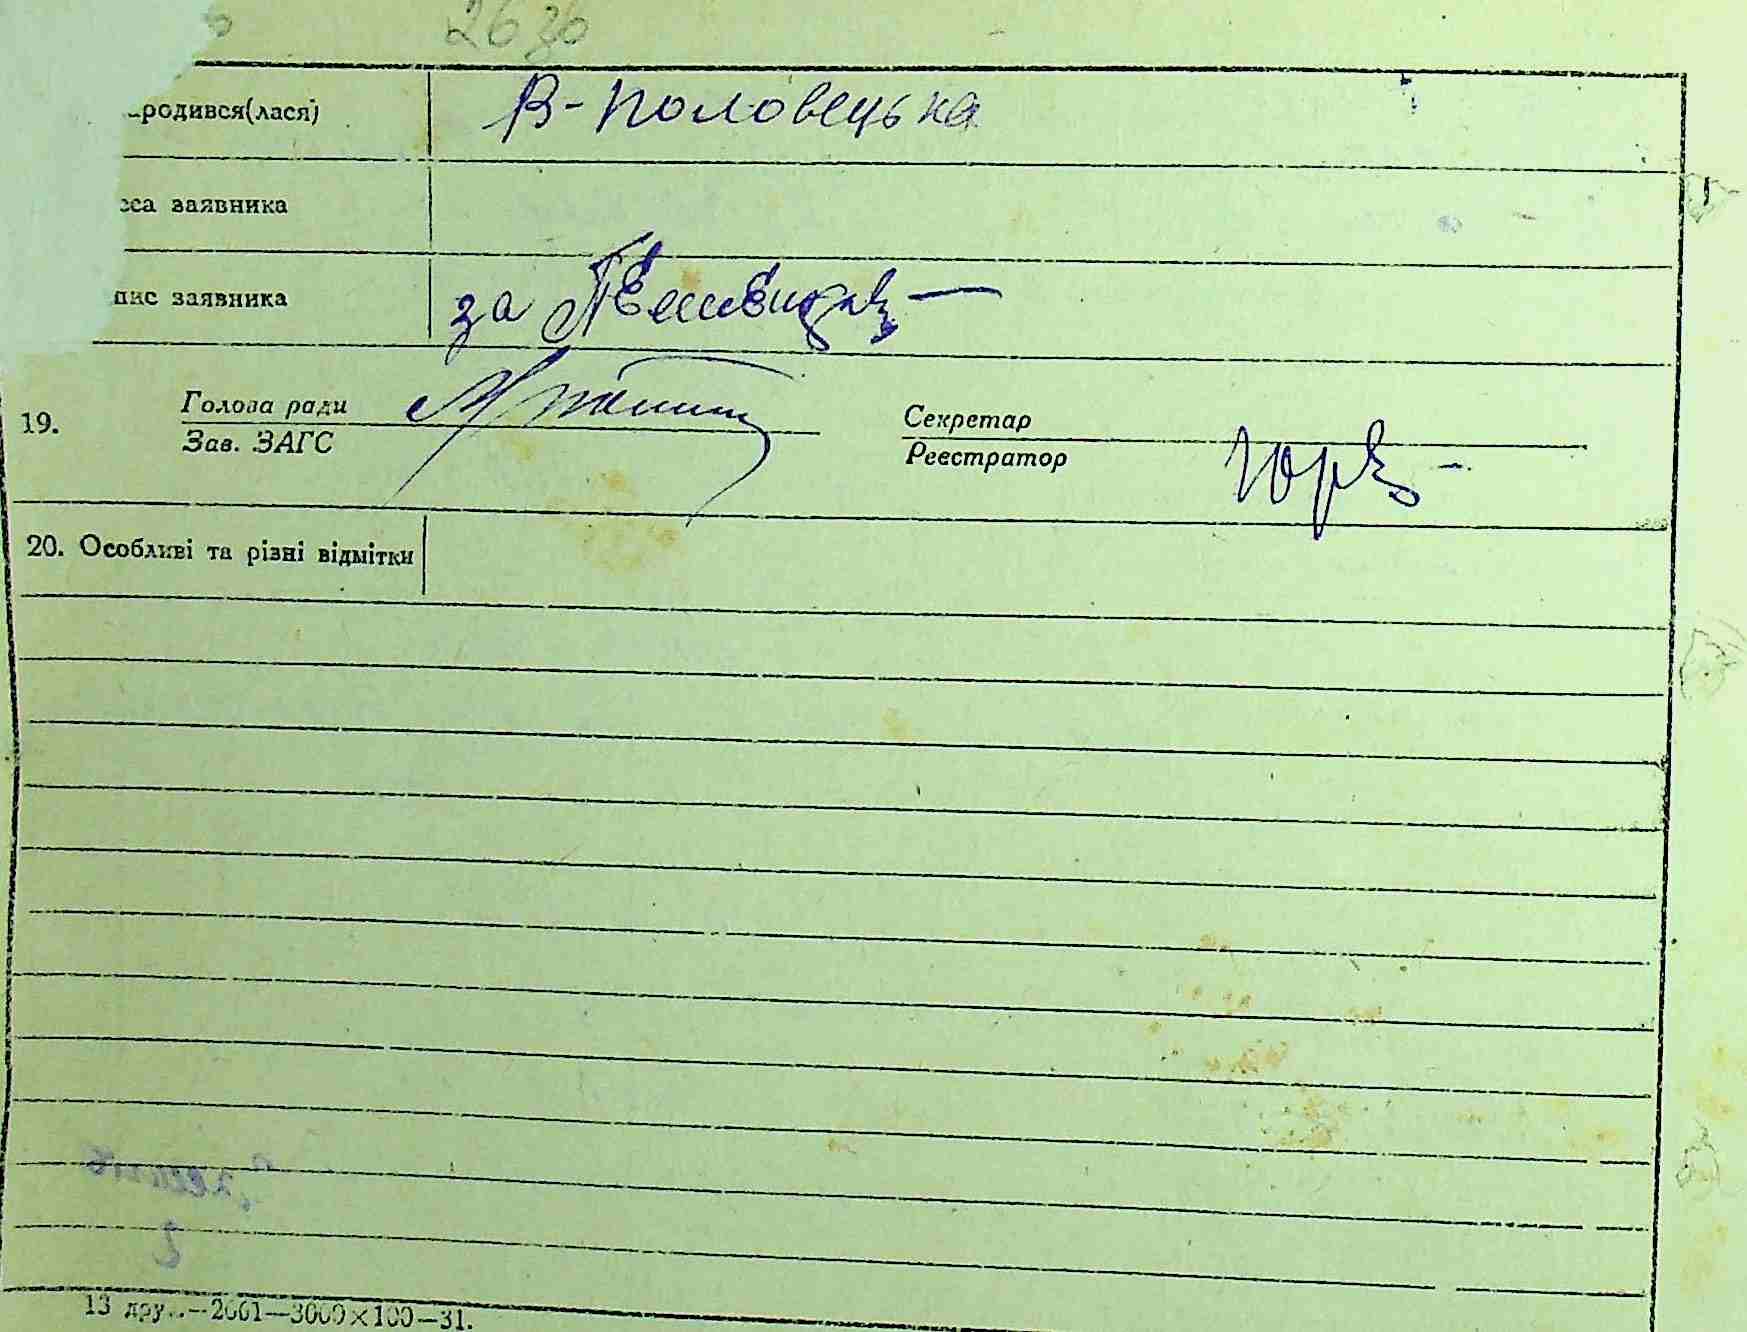 26 зв
родився(лася) В-Половецька
еса заявника
пис заявника за
19. Голова ради Секретар
Зав. ЗАГС Реєстратор
20. Особливі та різні відмітки
13 дру..—2661—3000×100—31.